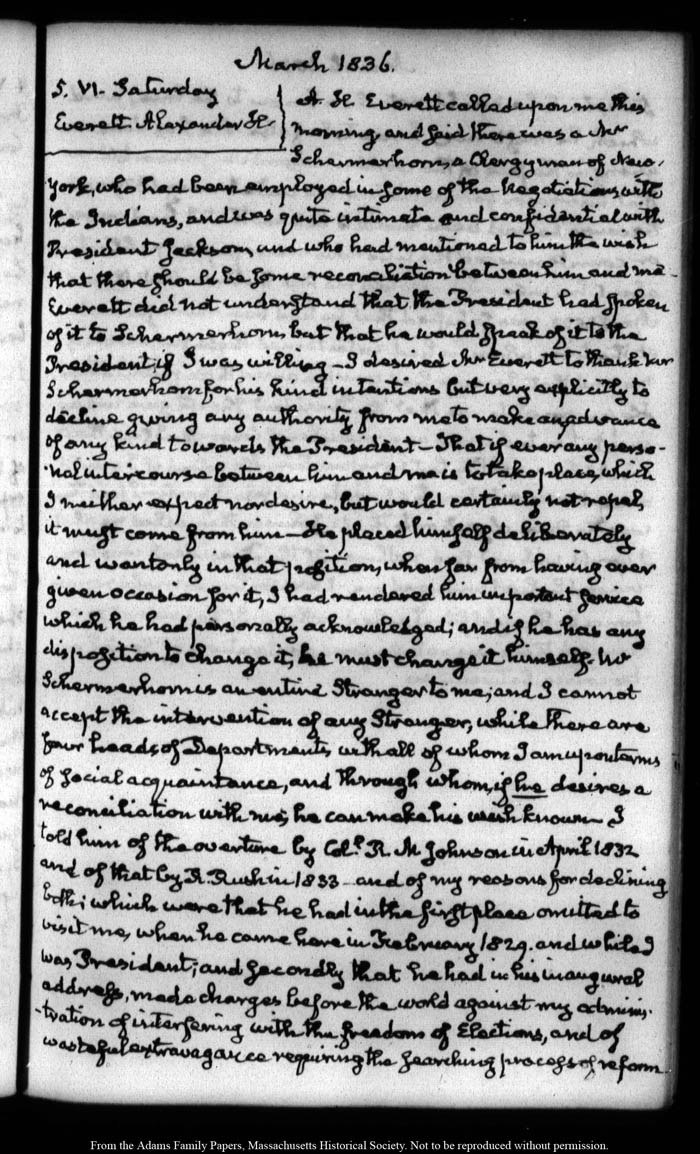 March 1836.
5. VI. Saturday
Everett Alexander H.
A. H. Everett called upon me this
morning, and said there was a Mr
Schermerhorn, a Clergyman of New-
York, who had been employed in some of the Negotiations with
the Indians, and was quite intimate and confidential with
President Jackson, and who had mentioned to him the wish
that there should be some reconciliation between him and me-
Everett did not understand that the President had spoken
of it to Schermerhorn, but that he would speak of it to the
President, if I was willing - I desired Mr Everett to thank Mr
Schermerhorn for his kind intentions but very explicitly to
decline giving any authority from me to make an advance
of any kind towards the President - That if ever any perso-
nal intercourse between him and me is to take place, which
I neither expect nor desire, but would certainly not repel,
it must come from him - He placed himself deliberately
and wantonly in that position, when far from having ever
given occasion for it, I had rendered him important service
which he had personally acknowledged; and if he has any
disposition to change it, he must change it himself. Mr
Schermerhorn is an entire Stranger to me; and I cannot
accept the intervention of any Stranger, while there are
four heads of Departments, with all of whom I am upon terms
of social acquaintance, and through whom, if he desires a
reconciliation with me, he can make his wish known - I
told him of the overture by Coll. R. M. Johnson in April 1832
and of that by R. Rush in 1833 - and of my reasons for declining
both; which were that he had in the first place omitted to
visit me, when he came here in February 1829. and while I
was President; and secondly that he had in his inaugural
address, made charges before the world against my adminis-
tration of interfering with the freedom of Elections, and of
wasteful extravagance requiring the searching process of reform
From the Adams Family Papers, Massachusetts Historical Society. Not to be reproduced without permission.